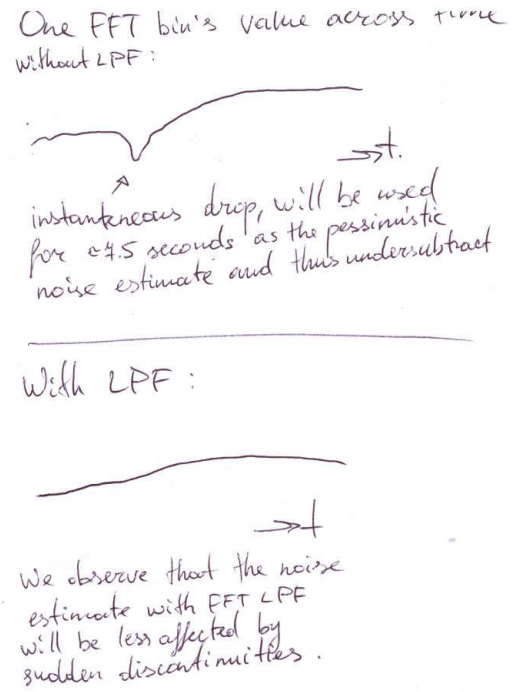 One FFT bin's value across time
without LPF:
→t.
instantaneous drop, will be used
for ~7.5 seconds as the pessimistic
noise estimate and thus undersubtract
With LPF :
→t
We observe that the noise
estimate with FFT LPF
will be less affected by
sudden discontinuities.